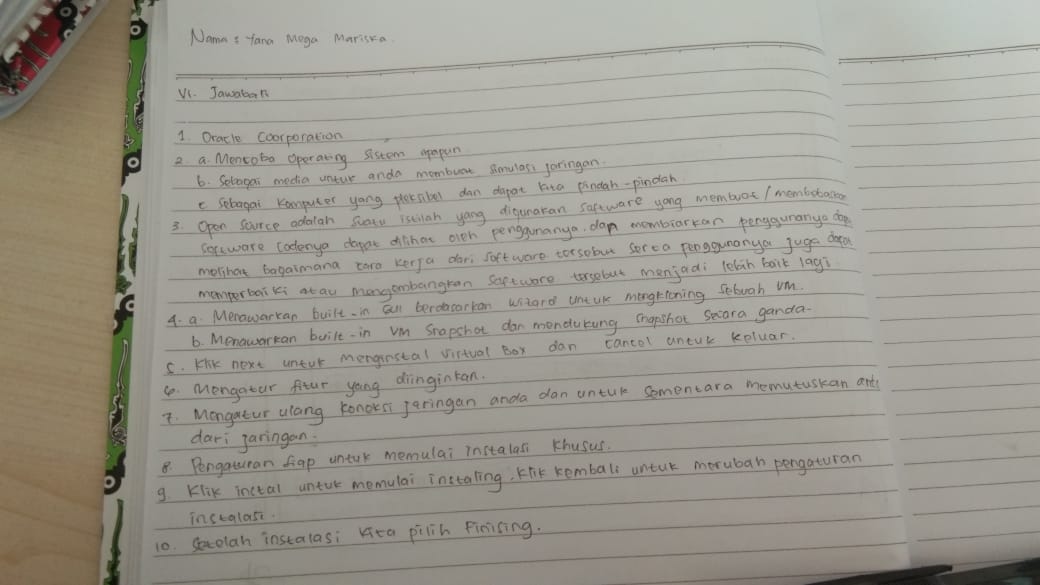 Nama : Yana Mega Mariska.
VI. Jawaban
1. Oracle Coorporation
2. a. Mencoba Operating Sistem apapun
b. Sebagai media untuk anda membuat simulasi jaringan.
c. Sebagai Komputer yang fleksibel dan dapat kita pindah-pindah.
3. Open Source adalah suatu istilah yang digunakan software yang membuat / membebaskan
software codenya dapat dilihat oleh penggunanya. dan membiarkan penggunanya dapat
melihat bagaimana cara kerja dari software tersebut serta penggunanya juga dapat
memperbaiki atau mengembangkan software tersebut menjadi lebih baik lagi.
4. a. Menawarkan built-in GUI berdasarkan wizard untuk mengkloning sebuah VM.
b. Menawarkan built-in VM Snapshot dan mendukung Snapshot secara ganda.
5. Klik next untuk menginstal Virtual Box dan cancel untuk keluar.
6. Mengatur fitur yang diinginkan.
7. Mengatur ulang koneksi jaringan anda dan untuk sementara memutuskan anda
dari jaringan.
8. Pengaturan siap untuk memulai instalasi khusus.
9. Klik instal untuk memulai instaling. Klik kembali untuk merubah pengaturan
instalasi.
10. Setelah instalasi kita pilih Finising.